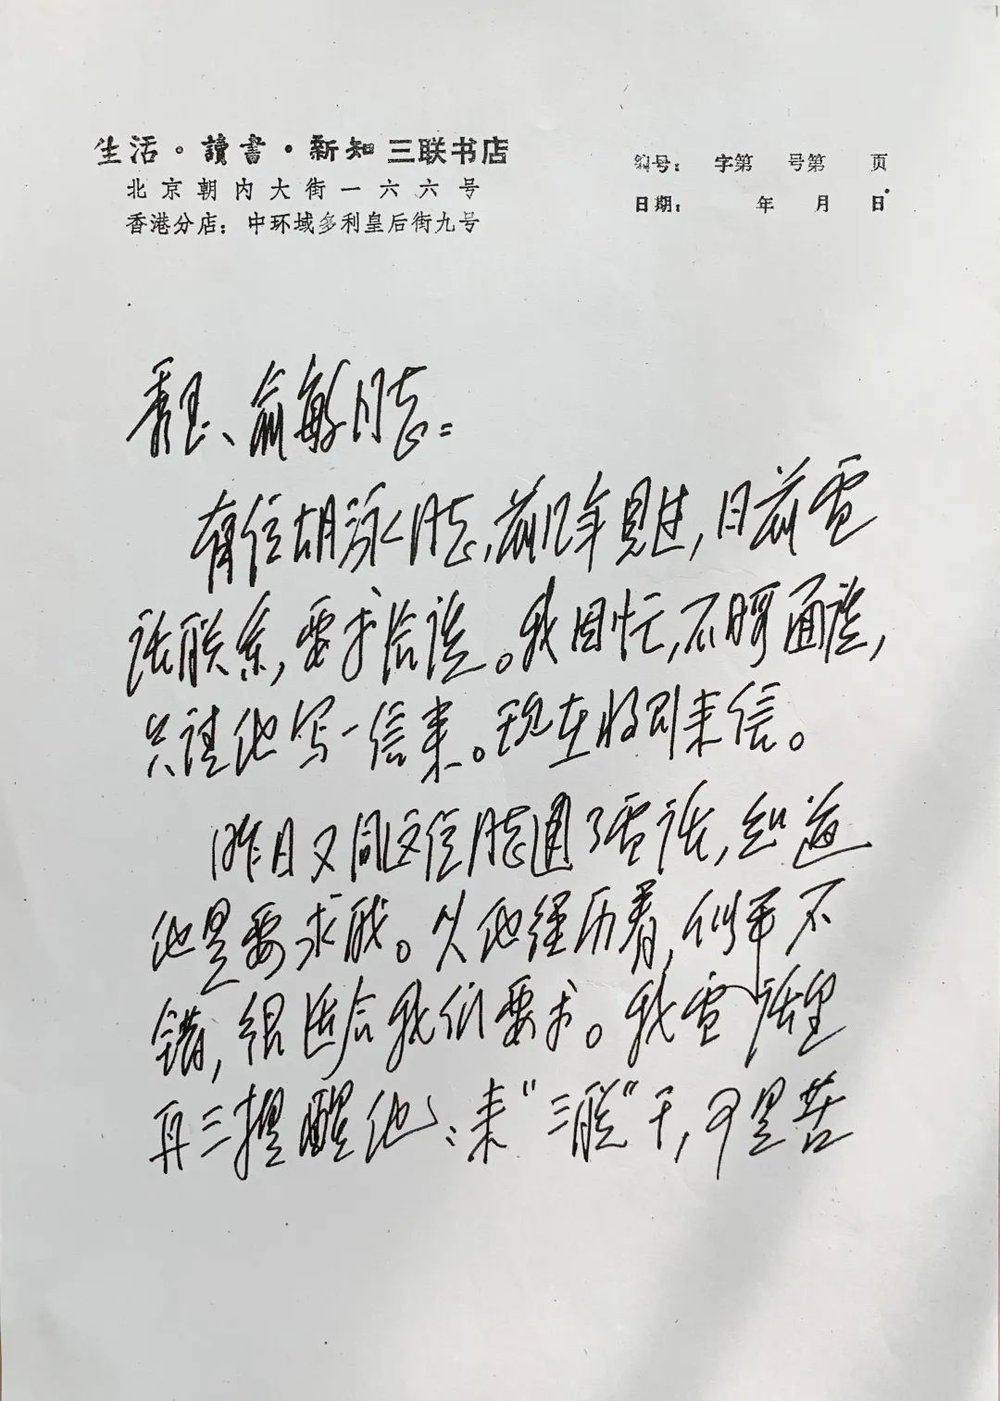 生活·讀書·新知三联书店
北京朝内大街一六六号
香港分店：中环域多利皇后街九号
编号： 字第 号第 页
日期： 年 月 日
秀玉、俞敏同志：
有位胡泳同志，前几年见过，日前電
话联系，要求洽谈。我因忙，不暇面谈，
只请他写一信来。现在收到来信。
昨日又同这位同志通了電话，知道
他是要求职。从他经历看，似乎不
错，很适合我们要求。我電话里
再三提醒他：来“三联”干，可是苦